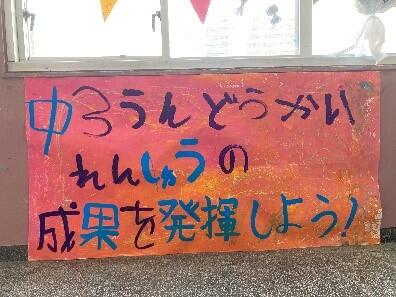 中ろうんどうかい
れんしゅうの
成果を発揮しよう!